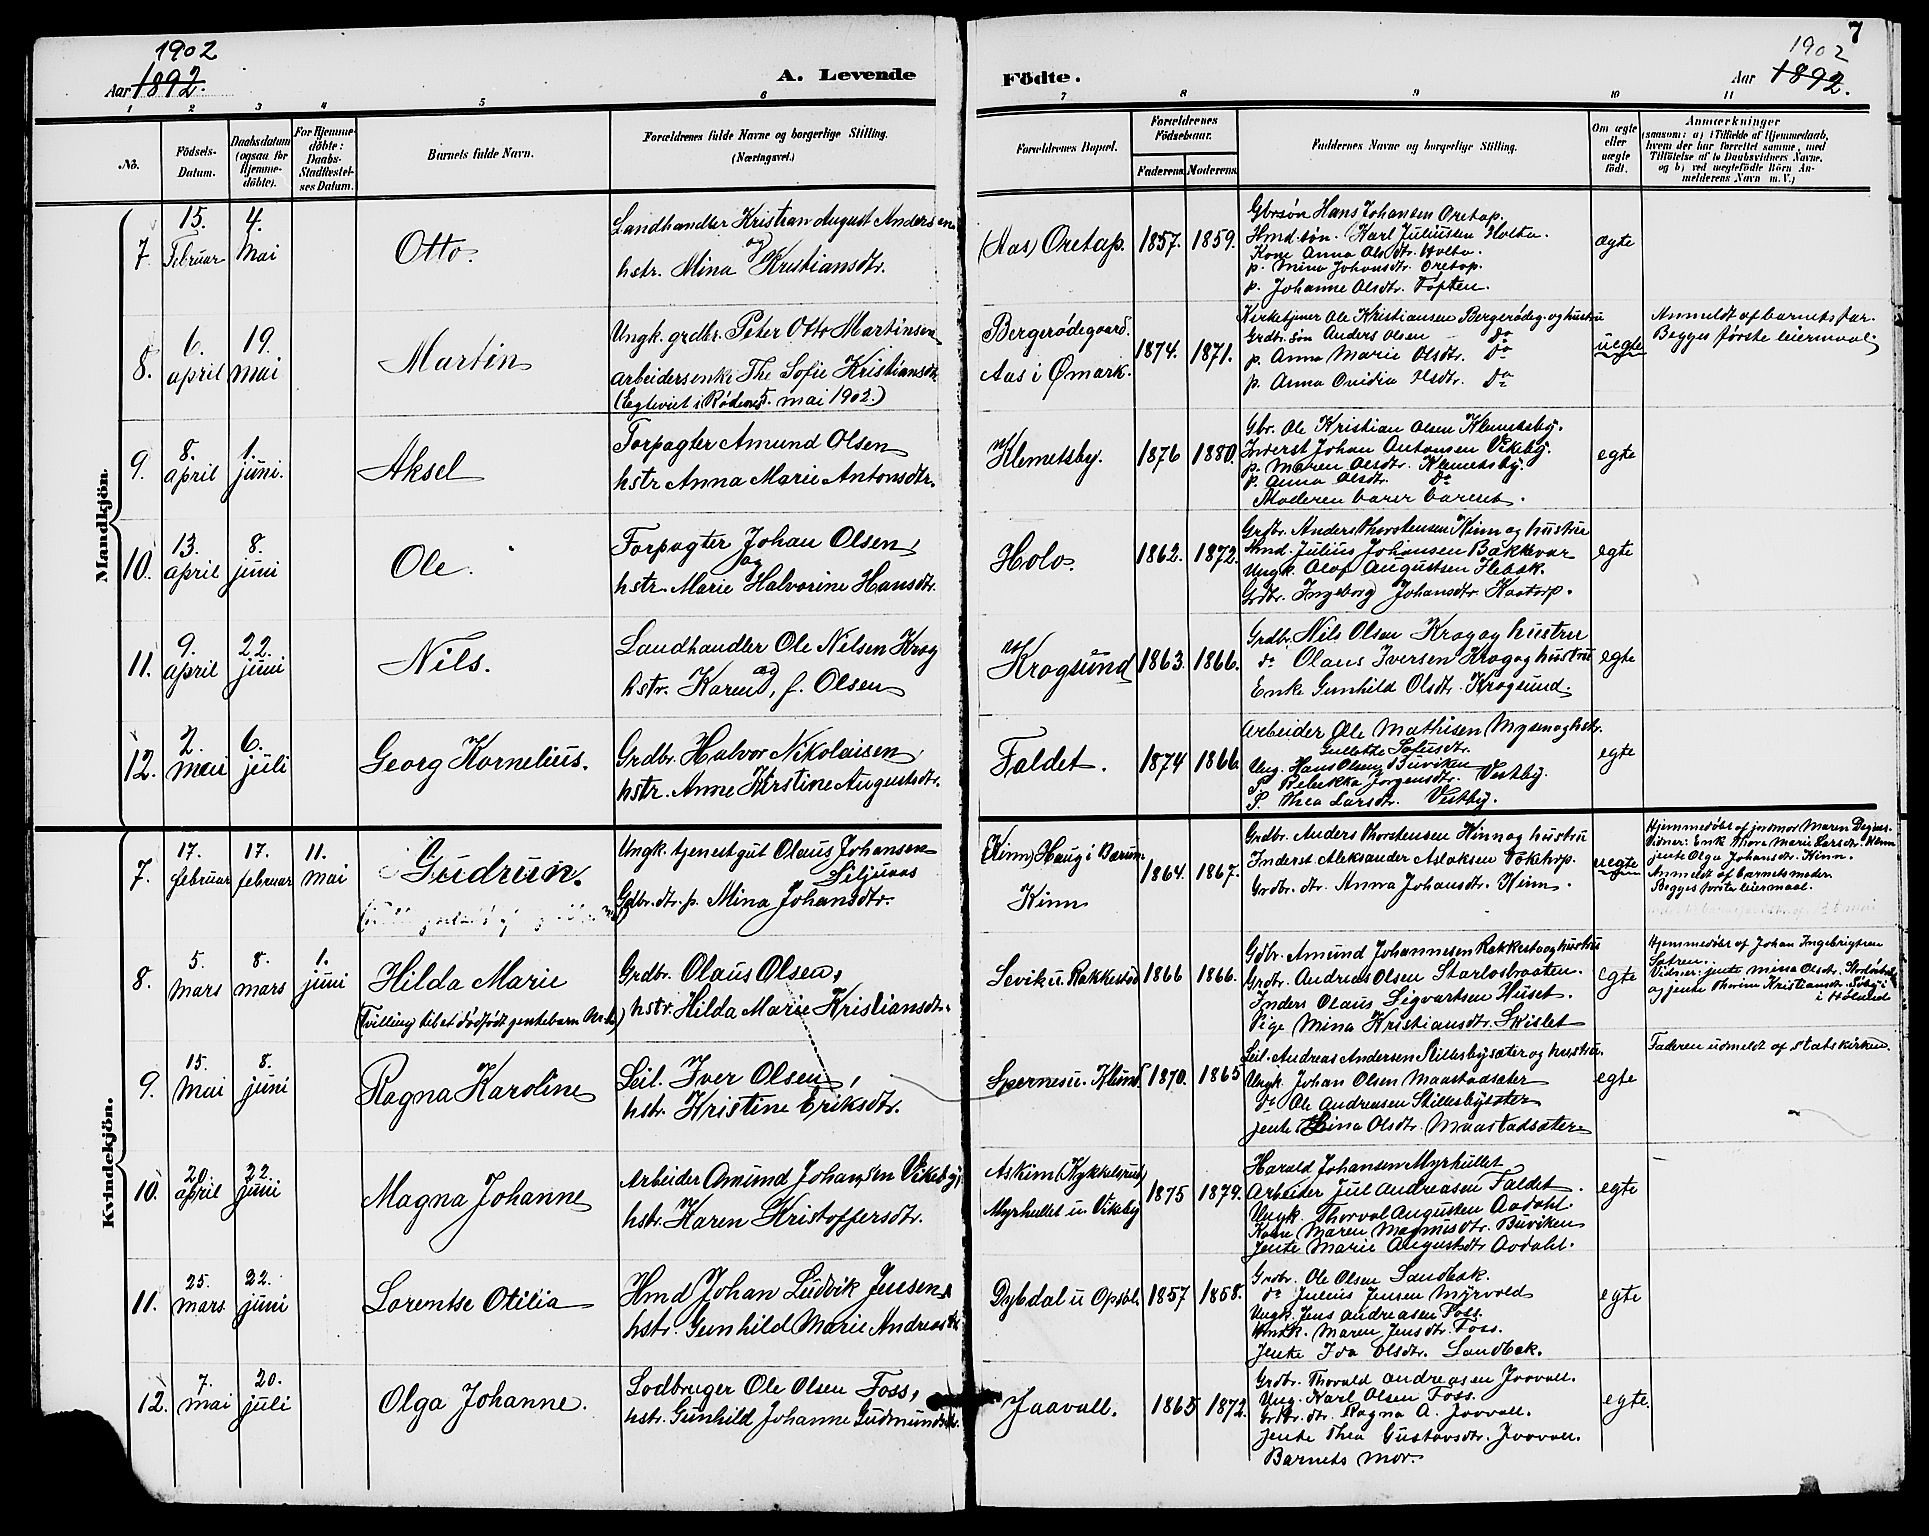 1902
Aar 1892.
A. Levende
Födte.
7
1902
Aar 1892.
1 2 3 4 5 6 7 8 9 10 11
No.
Födsels-Datum.
Daabsdatum (ogsaa for Hjemme-döbte).
For Hjemme-döbte: Daabs-Stadfæstel-ses Datum.
Barnets fulde Navn.
Forældrenes fulde Navne og borgerlige Stilling. (Næringsvei.)
Forældrenes Bopæl.
Forældrenes Födselsaar.
Faderens. Moderens.
Faddernes Navne og borgerlige Stilling.
Om ægte eller uægte födt.
Anmærkninger
(saasom: a) i Tilfælde af Hjemmedaab, hvem der har forrettet samme, med Tilföielse af to Daabsvidners Navne, og b) ved uægtefödte Börn An-melderens Navn m. V.)
Mandkjön.
7
15. Februar
4. Mai
Otto.
Landhandler Kristian August Andersen
og
hstr. Mina Kristiansdtr.
(Aas) Oretop.
1857. 1859.
Gbrsøn Hans Johansen Oretop.
Hmd.søn. Karl Juliussen Holta.
Kone Anna Olsdtr. Holta.
p. Mina Johansdtr. Oretop.
p. Johanne Olsdtr. Toften.
ægte
8.
6. april
19. mai
Martin
Ungk. grdbr. Peter Otto Martinsen
Arbeidersenke The. Sofie Kristiansdtr.
(Egteviet i Rødenes 5. mai 1902.)
Bergerødegaard.
Aas i Ømark.
1874. 1871.
Kirketjener Ole Kristiansen Bergerødeg. og hustru
Grdbr. søn Anders Olsen do
p. Anna Marie Olsdtr. do
p. Anna Ovidia Olsdtr. do
uegte
Anmeldt af barnets far.
Begges første leiermaal.
9.
8. april
1. juni.
Aksel
Forpagter Amund Olsen
hstr Anna Marie Antonsdtr.
Klemetsby.
1876 1880.
Gbr. Ole Kristian Olsen Klemetsby.
Inderst Johan Antonsen Vikeby.
p. Maren Olsdtr. Klemetsby.
p. Anna Olsdtr. do
Moderen barer barnet.
egte
10.
13. april
8. juni
Ole.
Forpagter Johan Olsen
og
hstr. Marie Halvorine Hansdtr.
Holo.
1862. 1872.
Grdbr. Anders Thorstensen Kinn og hustru
Hmd. Julius Johansen Bakkevar
Ungk. Olaf Augustsen Flebak.
Grdbr. Ingeborg Johansdtr. Kaatorp.
egte
11.
9. april
22. juni
Nils.
Landhandler Ole Nilsen Krog
og
hstr. Karen, f. Olsen
Krogsund
1863. 1866.
Grdbr. Nils Olsen Krog og hustru
do Olaus Iversen Krog og hustru
Enke Gunhild Olsdtr. Krogsund.
egte
12.
2. mai
6. juli
Georg Kornelius.
Grdbr. Halvor Nikolaisen,
hstr. Anne Kirstine Augustsdtr.
Faldet.
1874 1866
Arbeider Ole Mathisen Mysen og hstr.
Gulette Sofusdtr.
Ung. Hans Olsen Buviken
P. Rebekka Jørgensdtr. Vestby.
P. Thea Larsdtr. Vestby.
egte
Kvindekjön.
7.
17. februar
17. februar
11. mai
Gudrun.
Ungk. tjenestgut Olaus Johansen
Liljunas
Gdbr. dtr. p. Mina Johansdtr.
(Kinn) Haug i Bærum
Kinn
1864. 1867.
Grdbr. Anders Thorstensen Kinn og hustru
Inderst Aleksander Aslaksen Toktorp.
Grdbr. dtr. Anna Johansdtr. Kinn.
uegte
Hjemmedøbt af jordmor Maren Degnes.
Vidner: Enk. Thora Marie Larsdtr. Kinn
jente Olga Johansdtr. Kinn.
Anmeldt af barnets moder.
Begges første leiermaal.
8.
5. mars
8. mars
1. juni
Hilda Marie
(Tvilling til et dødfødt jentebarn No.)
Grdbr. Olaus Olsen,
hstr. Hilda Marie Kristiansdtr.
Sevik u. Rakkestad
1866 1866.
Grdbr. Amund Johannesen Rakkestad og hustru
Grdbr. Andreas Olsen Starlosbraaten.
Inders Olaus Sigvartsen Huset.
Pige Mina Kristiansdtr. Skislet
egte
Hjemmedøbt af Johan Ingebrigtsen
Sætren.
Vidner: jente Mina Olsdtr.
og jente Thorine Kristiansdtr.
i Høland
9.
15. Mai
8. juni
Ragna Karoline
Seil. Iver Olsen,
hstr. Kristine Eriksdtr.
Spernes u. Klund.
1870. 1865
Seil. Andreas Andersen Stillesbysæter og hustru.
Ungk. Johan Olsen Maastadsæter
do Ole Andreasen Stillesbysæter
jente Lina Olsdtr. Maastadsæter
egte
Faderen udmeldt af statskirken.
10.
20. april
22. juni
Magna Johanne
Arbeider Amund Johansen Vikeby,
hstr. Karen Kristoffersdtr.
Askim (Kykkelsrud)
Myrhullet u. Vikeby
1875 1879.
Harald Johansen Myrhullet
Arbeider Jul Andreasen Faldet.
Ungk. Thorval Augustsen Aadahl.
Kone Maren Magnusdtr. Buviken
Jente Marie Augustsdtr Aadahl.
egte
11.
25. mars
22. juni
Lorentse Otilia
Hmd Johan Ludvik Jensen,
hstr. Gunhild Marie Andreasdtr
Dybdal u Opsal.
1857 1858.
Grdbr. Ole Olsen Sandbæk.
do Julius Jensen Myrvold
Ungk. Jens Andreasen Foss.
Maren Jensdtr. Foss.
Jente Ida Olsdtr. Sandbæk.
egte
12.
7. mai
20. juli
Olga Johanne.
Lodbruger Ole Olsen Foss,
hstr. Gunhild Johanne Gudmundsdtr.
Jaavall.
1865 1872.
Grdbr. Thorvald Andreasen Jaavall.
Ung. Karl Olsen Foss.
Grdbr. dtr. Ragna A. Jaavall.
jente Thea Gustavsdtr. Jaavall.
Barnets mor.
egte.